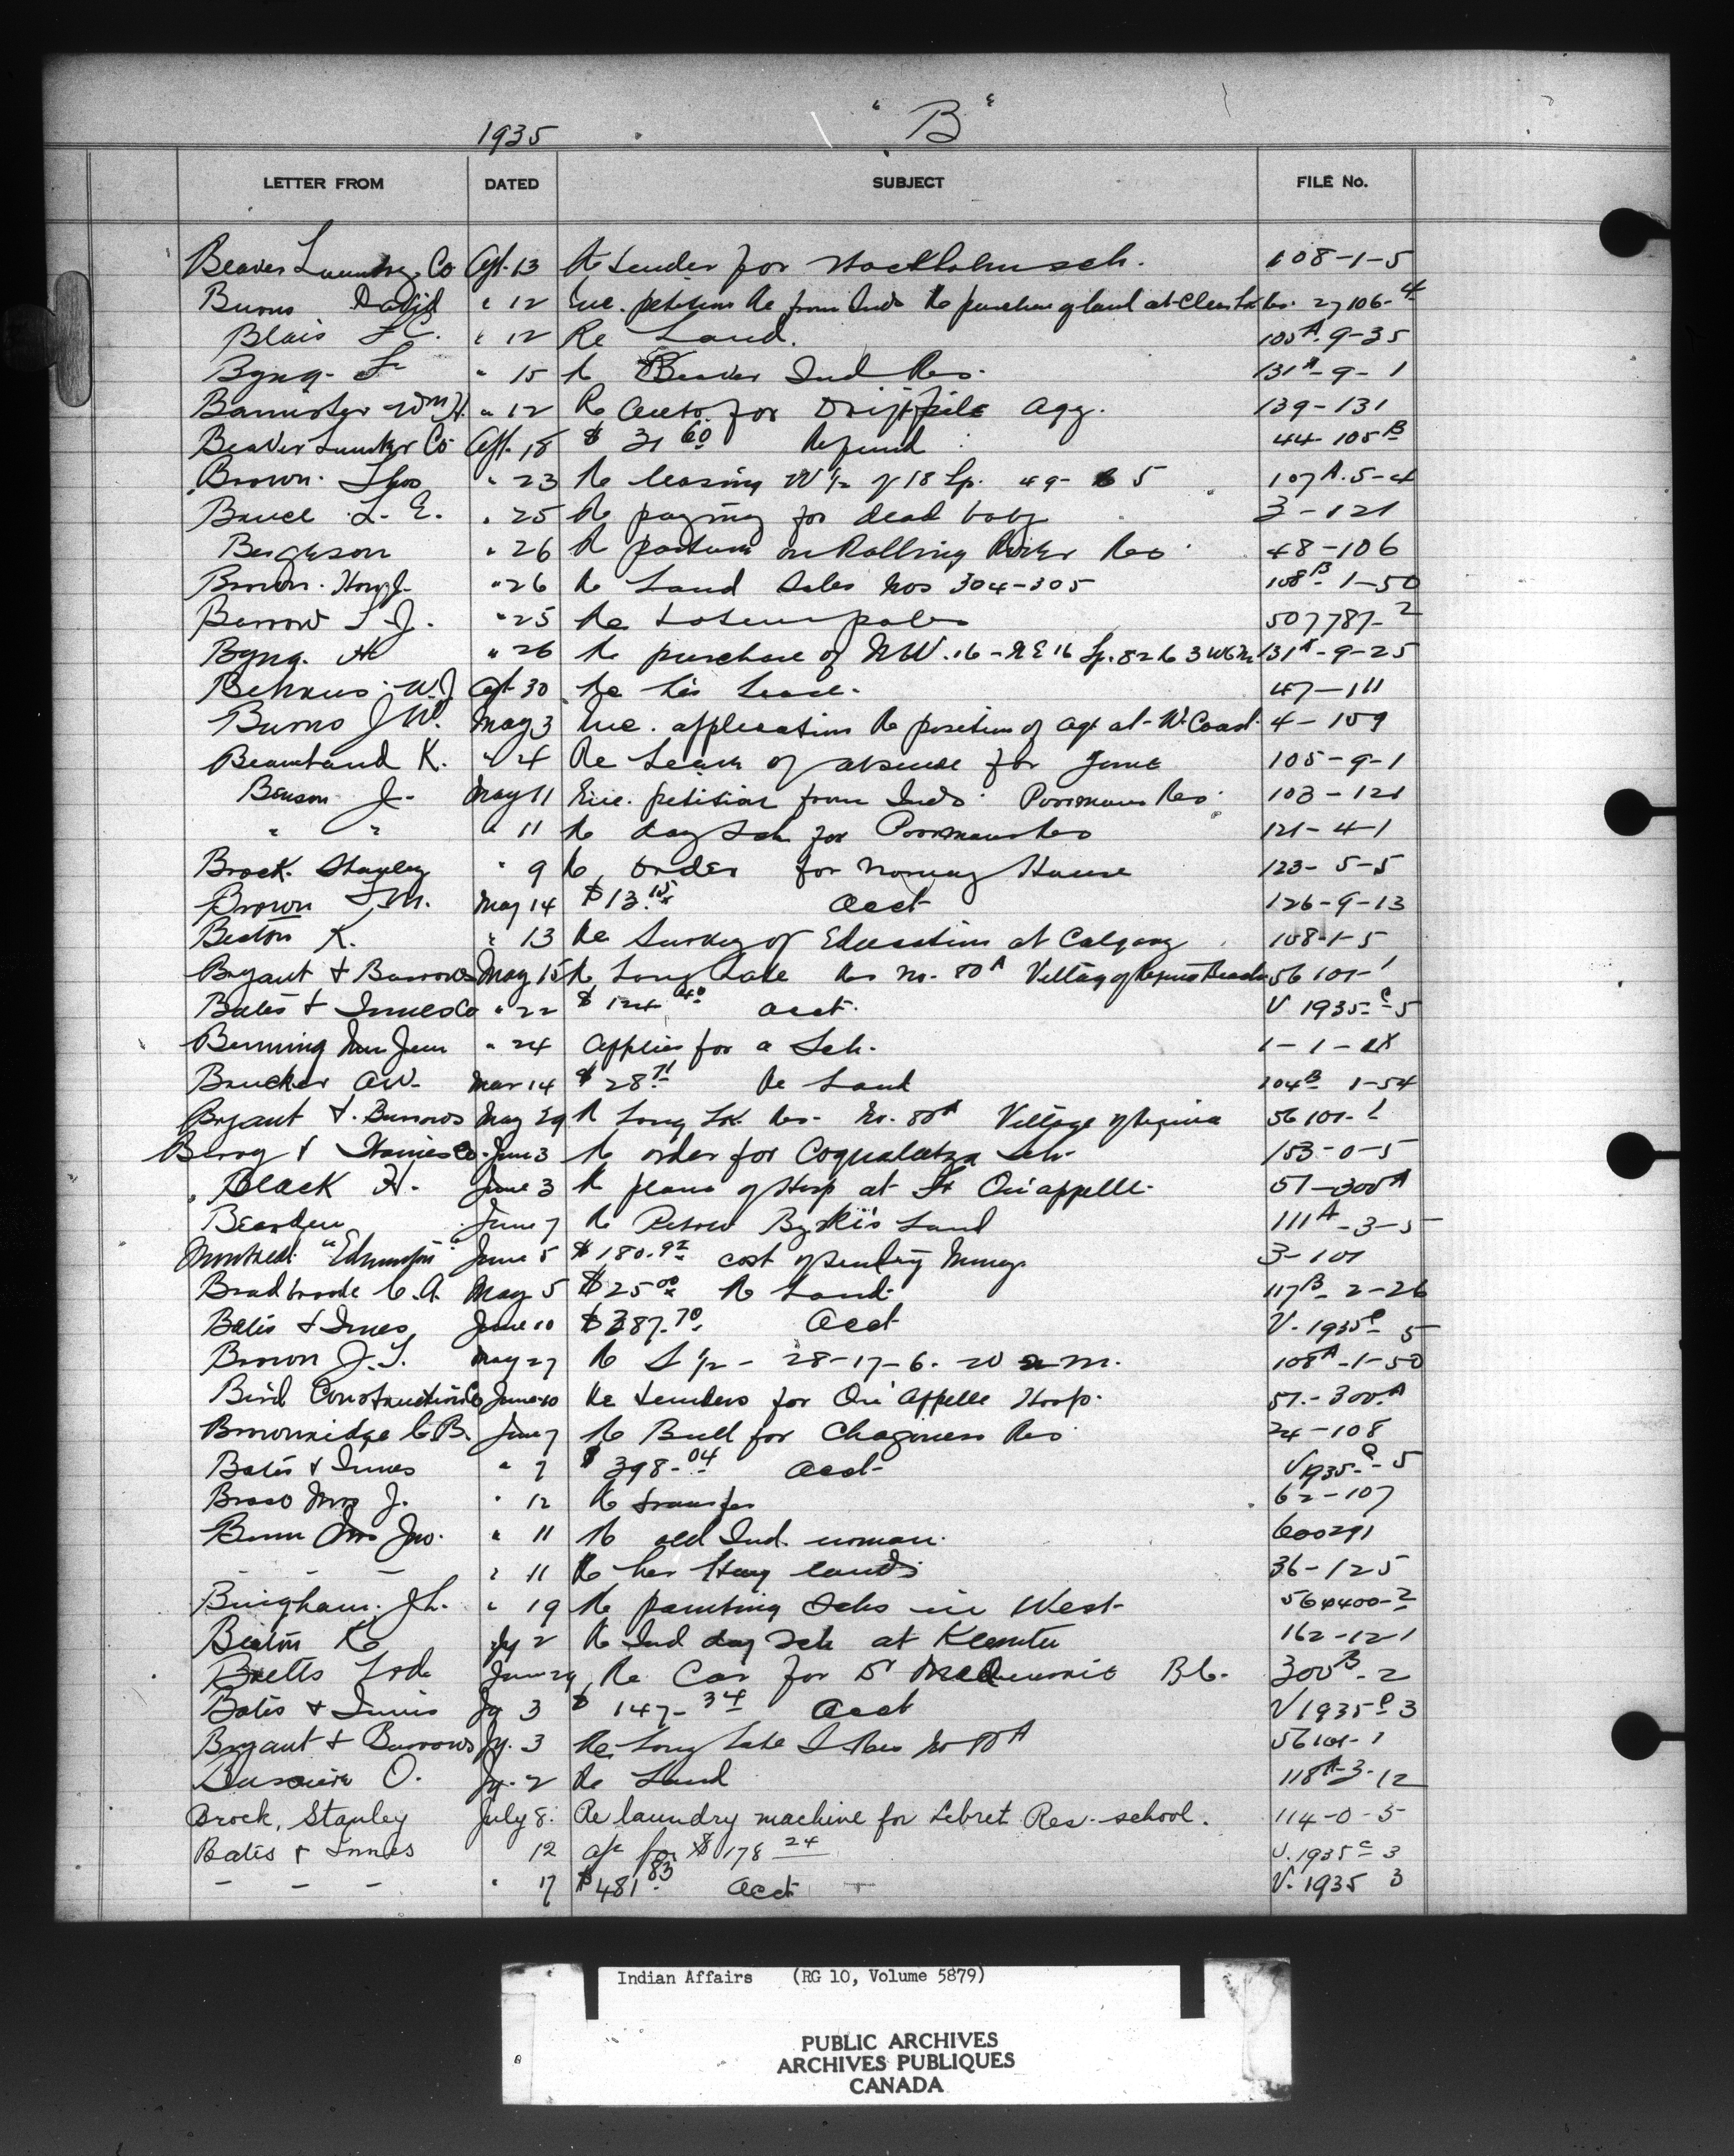 1935 "B"
LETTER FROM DATED SUBJECT FILE No.
Beaver Co Apl. 13 Re Tender for sch. 108-1-5
Burns David " 12 Enc. petition Re from Inds Re purchase of land at Clear Lk Res. 27106-4
Blais F.C. " 12 Re Land. 105A-9-35
Byng. F " 15 Re Beaver Ind Res. 131A-9-1
Bannister Wm H. " 12 Re Auto for Driftpile Agy. 139-131
Beaver Lumber Co Apl. 18 $ 31 60 Refund 44-105B
Brown. Thos " 23 Re leasing W 1/2 of 18 Tp. 49- 5 107A.5-4
Bruce L. E. " 25 Re paying for dead baby 3-121
" 26 Re pasture on Rolling River Res 48-106
Brown. " 26 Re Land Sales Nos 304-305 108B-1-50
Barrow T. J. " 25 Re Totem poles 507787-2
Byng. H " 26 Re purchase of NW.16-NE16 Tp.82 R 3 W6M 131A-9-25
W.J. Apl 30 Re his Lease. 47-111
Burns J W. May 3 Enc. application Re position of agt at W. Coast 4-109
K. " 4 Re Leave of absence for June 105-9-1
Benson J. May 11 Enc. petition from Inds. Poormans Res. 103-121
" " " 11 Re day Sch for Poormans Res 121-4-1
Brock. Stanley " 9 Re order for Norway House 123-5-5
Brown May 14 $13.15 Acct 126-9-13
Beaton K. " 13 Re Survey of Education at Calgary 108-1-5
Bryant & Burrows May 15 Re Long Lake Res no. 80A Village of Regina Beach 56101-1
Bates & Innes Co " 22 $ 124 40 acct. V 1935-C-5
Benning " 24 Applies for a Sch. 1-1-
Brucker A.W. Mar 14 $ 28.71 Re Land 104B 1-54
Bryant & Burrows May 29 Re Long Lk. Res. No. 80A Village of Regina 56101-1
June 3 Re order for Coqualeetza Sch. 153-0-5
Black H. June 3 Re plans of Hosp at Ft Qu'appelle. 51-300A
June 7 Re Peter Land 111A-3-5
Montreal "Edmonton" June 5 $180.92 cost of sending Money 3-101
Bradbrooke C. A. May 5 $25.00 Re Land 117B-2-26
Bates & Innes June 10 $387.70 Acct V-1935C-5
Brown J.T. May 27 Re S 1/2-28-17-6. W 2 M. 108A-1-50
Bird Construction Co June 10 Re tenders for Qu'Appelle Hosp. 51-300A
Brownridge C.B. June 7 Re Bull for Chagoness Res 24-108
Bates & Innes " 7 $ 398.04 Acct V1935-C-5
Mrs J. " 12 Re transfer 62-107
Mrs Jno. " 11 Re old Ind. woman. 600291
- - - " 11 Re her Hay lands 36-125
Bingham. J.L. " 19 Re painting Schs in West 560400-2
Beaton K Jy 2 Re Ind day Sch at Klemtu 162-121
Bretts Ltd. June 29 Re Car for Dr B.C. 300B-2
Bates & Innis Jy 3 $ 147.34 Acct V1935C 3
Bryant & Burrows Jy. 3 Re. Long Lake I Res No 80A 56101-1
O. Jy. 2 Re Land 118A-3-12
Brock, Stanley July 8. Re laundry machine for Lebret Res. school. 114-0-5
Bates & Innes 12 a/c for $178 24 V.1935 C 3
- - - " 17 $481.83 Acct V. 1935 3
Indian Affairs (RG 10, Volume 5879)
PUBLIC ARCHIVES
ARCHIVES PUBLIQUES
CANADA